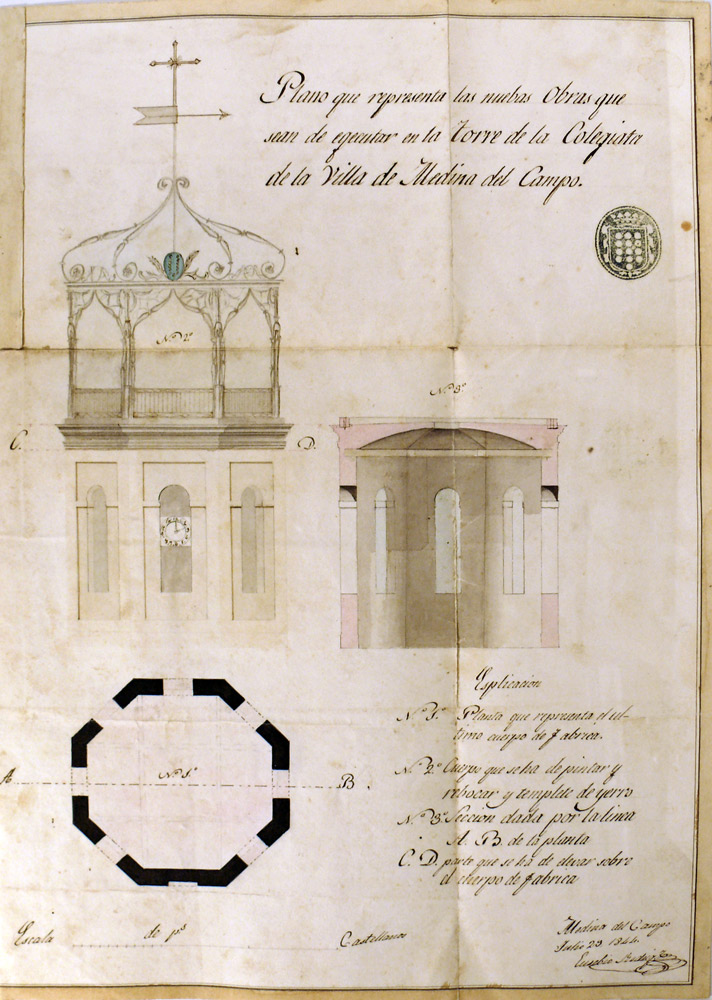 Plano que representa las nuebas Obras que
sean de egecutar en la Torre de la Colegiata
de la Villa de Medina del Campo.
N.º 2.º
N.º 3.º
C.
D.
Esplicacion
N.º 1.º Planta que representa el ul-
timo cuerpo de fabrica.
N.º 2.º Cuerpo que se ha de pintar y
rebocar y templete de yerro
N.º 3.º Seccion dada por la linea
A. B. de la planta
C. D. parte que se ha de elevar sobre
el cuerpo de fabrica
A
N.º 1.º
B.
Escala de p.s Castellanos
Medina del Campo
Julio 23 1844.
Eusebio